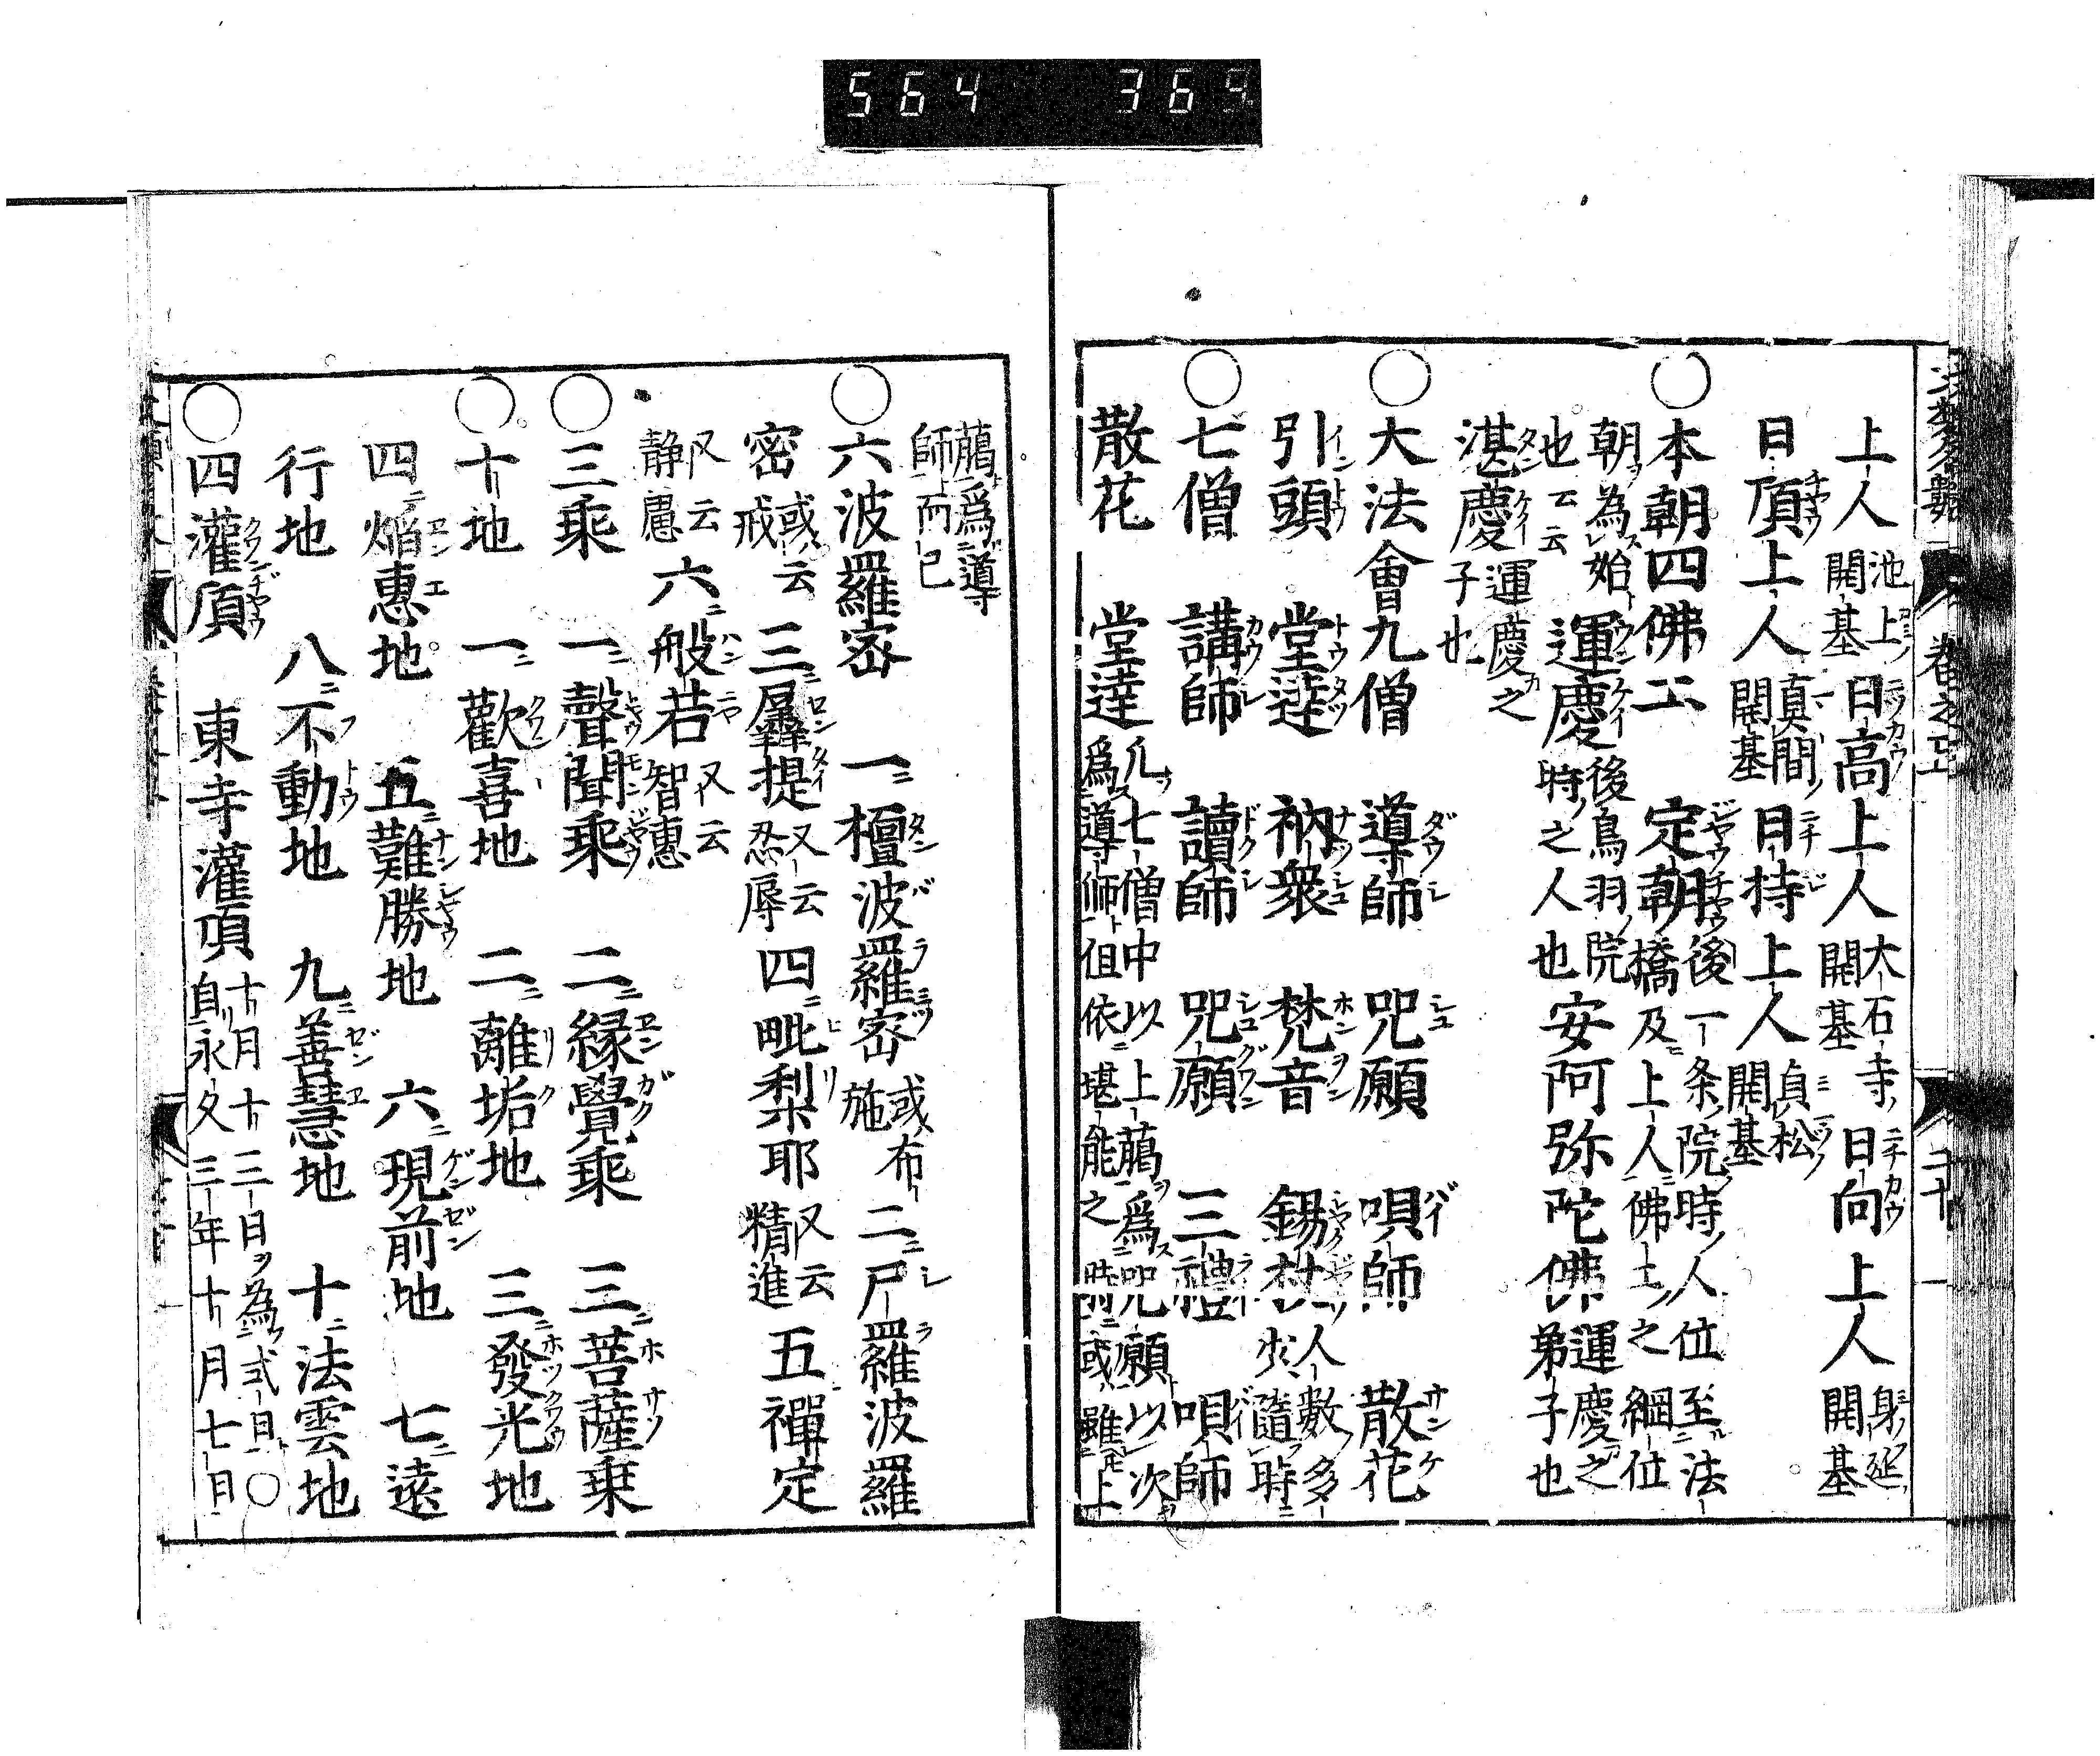 564 369
上人 池上開基 日高上人 大石寺開基 日向上人 身延開基
日頂上人 真間開基 日持上人 貞松開基
○本朝四佛工 定朝 後一条院時人位至法橋及上人佛士之綱位
朝為始也云云 運慶 後鳥羽院時之人也 安阿弥陀佛 運慶之弟子也
湛慶 運慶之子也
○大法會九僧 導師 咒願 唄師 散花
引頭 堂達 衲衆 梵音 錫杖 人數多少隨時
○七僧 講師 讀師 咒願 三禮 唄師
散花 堂達 凡七僧中以上﨟為咒願以次為導師但依堪能之時或雖上
﨟爲導師而已
○六波羅密 一檀波羅密 或布施 二尸羅波羅
密 或云戒 三羼提 又云忍辱 四毗梨耶 又云精進 五禪定
又云静慮 六般若 又云智惠
○三乘 一聲聞乘 二緣覺乘 三菩薩乗
○十地 一歡喜地 二離垢地 三發光地
四焔惠地 五難勝地 六現前地 七遠
行地 八不動地 九善慧地 十法雲地
○四灌頂 東寺灌頂 十月十三日為式日○自永久三年十月七日